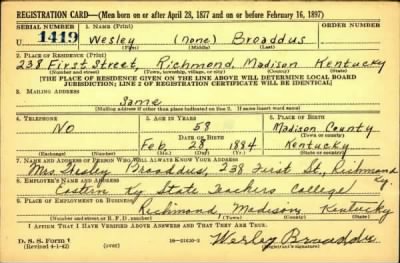 REGISTRATION CARD—(Men born on or after April 28, 1877 and on or before February 16, 1897)
SERIAL NUMBER 1. NAME (Print)
U 1419 Wesley (none) Broaddus
(First) (Middle) (Last)
2. PLACE OF RESIDENCE (Print)
238 First Street, Richmond, Madison Kentucky
(Number and street) (Town, township, village, or city) (County) (State)
[THE PLACE OF RESIDENCE GIVEN ON THE LINE ABOVE WILL DETERMINE LOCAL BOARD
JURISDICTION; LINE 2 OF REGISTRATION CERTIFICATE WILL BE IDENTICAL]
3. MAILING ADDRESS
Same
[Mailing address if other than place indicated on line 2. If same insert word same]
4. TELEPHONE 5. AGE IN YEARS 6. PLACE OF BIRTH
No 58 Madison County
DATE OF BIRTH (Town or county)
Feb. 28 1884 Kentucky
(Exchange) (Number) (Mo.) (Day) (Yr.) (State or country)
7. NAME AND ADDRESS OF PERSON WHO WILL ALWAYS KNOW YOUR ADDRESS
Mrs. Wesley Broaddus, 238 First St, Richmond Ky.
8. EMPLOYER'S NAME AND ADDRESS
Eastern Ky State Teachers College
9. PLACE OF EMPLOYMENT OR BUSINESS
Richmond, Madison, Kentucky
(Number and street or R. F. D. number) (Town) (County) (State)
I AFFIRM THAT I HAVE VERIFIED ABOVE ANSWERS AND THAT THEY ARE TRUE.
D. S. S. Form 1
(Revised 4-1-42) (over) 16—21630-2 Wesley Broaddus
(Registrant's signature)